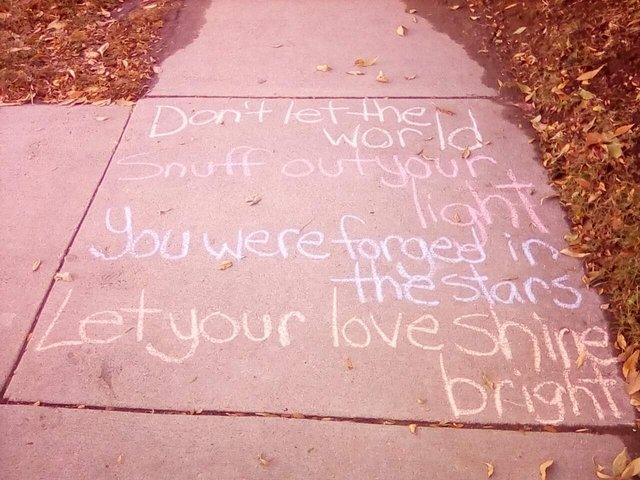 Don't let the
world
Snuff out your
light
You were forged in
the stars
Let your love shine
bright